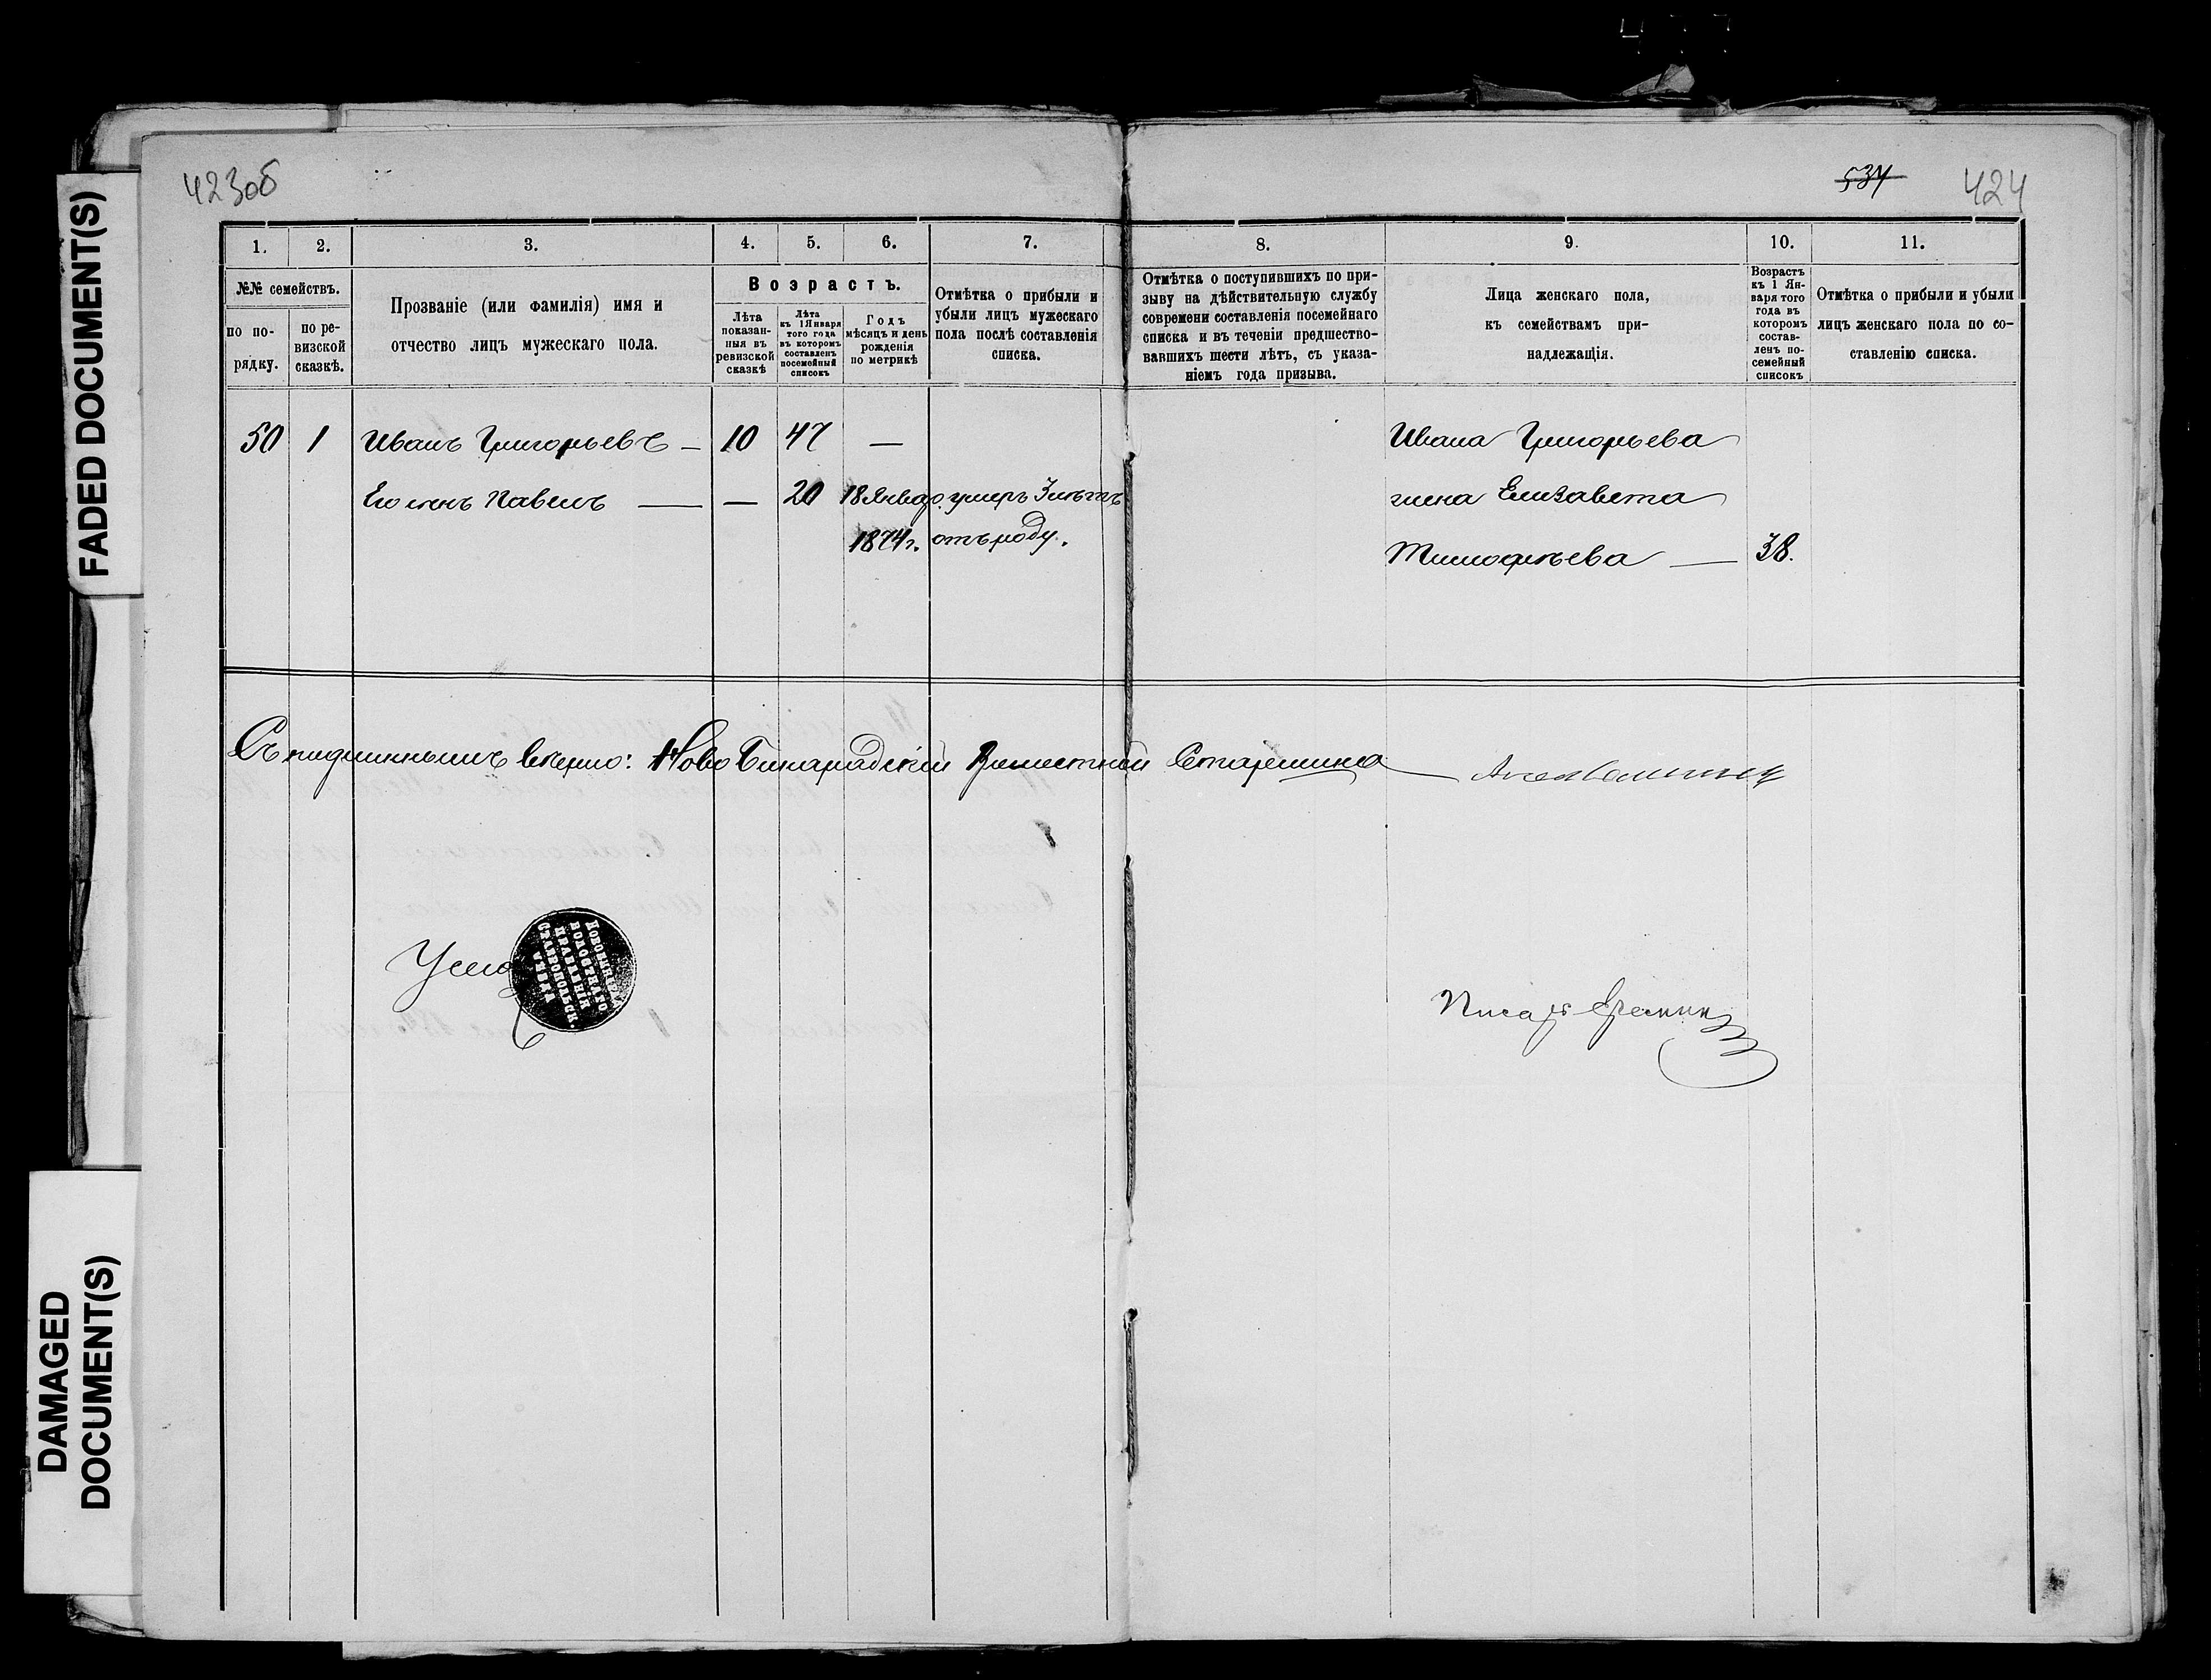 FADED DOCUMENT(S)
DAMAGED
DOCUMENT(S)
423об
534
424
1. 2. 3. 4. 5. 6. 7. 8. 9. 10. 11.
№№ семействъ.
по по-
рядку.
по ре-
визской
сказкѣ.
Прозваніе (или фамилія) имя и
отчество лицъ мужескаго пола.
Возрастъ.
Лѣта
показан-
ныя въ
ревизской
сказкѣ
Лѣта
къ 1 Января
того года
въ которомъ
составленъ
посемейный
списокъ
Годъ
мѣсяцъ и день
рожденія
по метрикѣ
Отмѣтка о прибыли и
убыли лицъ мужескаго
пола послѣ составленія
списка.
Отмѣтка о поступившихъ по при-
зыву на дѣйствительную службу
современи составленія посемейнаго
списка и въ теченіи предшество-
вавшихъ шести лѣтъ, съ указа-
ніемъ года призыва.
Лица женскаго пола,
къ семействамъ при-
надлежащія.
Возрастъ
къ 1 Ян-
варя того
года въ
которомъ
состав-
ленъ по-
семейный
списокъ
Отмѣтка о прибыли и убыли
лицъ женскаго пола по со-
ставленію списка.
50 1 Иванъ Григорьевъ — 10 47 — Ивана Григорьева
Его сынъ Павелъ — — 20 18 Январ. умеръ 3 лѣтъ жена Елизавета
1874 г. отъ роду. Тимофѣева — 38.
Съ подлиннымъ вѣрно: Ново Бинарадскій Волостной Старшина
НОВОБИНАР.
ВОЛОСТНАГО
ПРАВЛЕНІЯ
СТАВРОПОЛЬСК.
УѢЗДА
Писарь